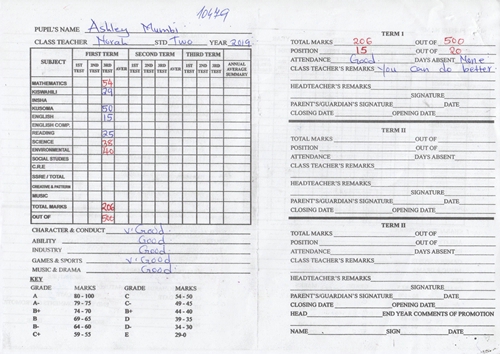 10479
PUPIL'S NAME Ashley Mumbi
CLASS TEACHER Norah STD Two YEAR 2019
FIRST TERM SECOND TERM THIRD TERM
SUBJECT 1ST TEST 2ND TEST 3RD TEST AVER 1ST TEST 2ND TEST 3RD TEST AVER 1ST TEST 2ND TEST 3RD TEST AVER ANNUAL AVERAGE SUMMARY
MATHEMATICS 54
KISWAHILI 29
INSHA
KUSOMA 50
ENGLISH 15
ENGLISH COMP.
READING
SCIENCE
ENVIRONMENTAL 40
SOCIAL STUDIES
C.R.E
SSRE / TOTAL
CREATIVE & PATTERN
MUSIC
TOTAL MARKS 206
OUT OF 500
CHARACTER & CONDUCT v. Good
ABILITY Good
INDUSTRY Good
GAMES & SPORTS v. Good
MUSIC & DRAMA Good
KEY
GRADE MARKS GRADE MARKS
A 80 - 100 C 54 - 50
A- 79 - 75 C- 49 - 45
B+ 74 - 70 B+ 44 - 40
B 69 - 65 D 39 - 35
B- 64 - 60 D- 34 - 30
C+ 59 - 55 E 29-0
TERM I
TOTAL MARKS 206 OUT OF 500
POSITION 15 OUT OF 20
ATTENDANCE Good DAYS ABSENT None
CLASS TEACHER'S REMARKS You can do better
HEADTEACHER'S REMARKS
SIGNATURE
PARENT'S/GUARDIAN'S SIGNATURE
CLOSING DATE OPENING DATE
TERM II
TOTAL MARKS OUT OF
POSITION OUT OF
ATTENDANCE DAYS ABSENT
CLASS TEACHER'S REMARKS
HEADTEACHER'S REMARKS
SIGNATURE
PARENT'S/GUARDIAN'S SIGNATURE
CLOSING DATE OPENING DATE
TERM II
TOTAL MARKS OUT OF
POSITION OUT OF
ATTENDANCE DAYS ABSENT
CLASS TEACHER'S REMARKS
HEADTEACHER'S REMARKS
SIGNATURE
PARENT'S/GUARDIAN'S SIGNATURE
CLOSING DATE OPENING DATE
HEAD END YEAR COMMENTS OF PROMOTION
NAME SIGN DATE